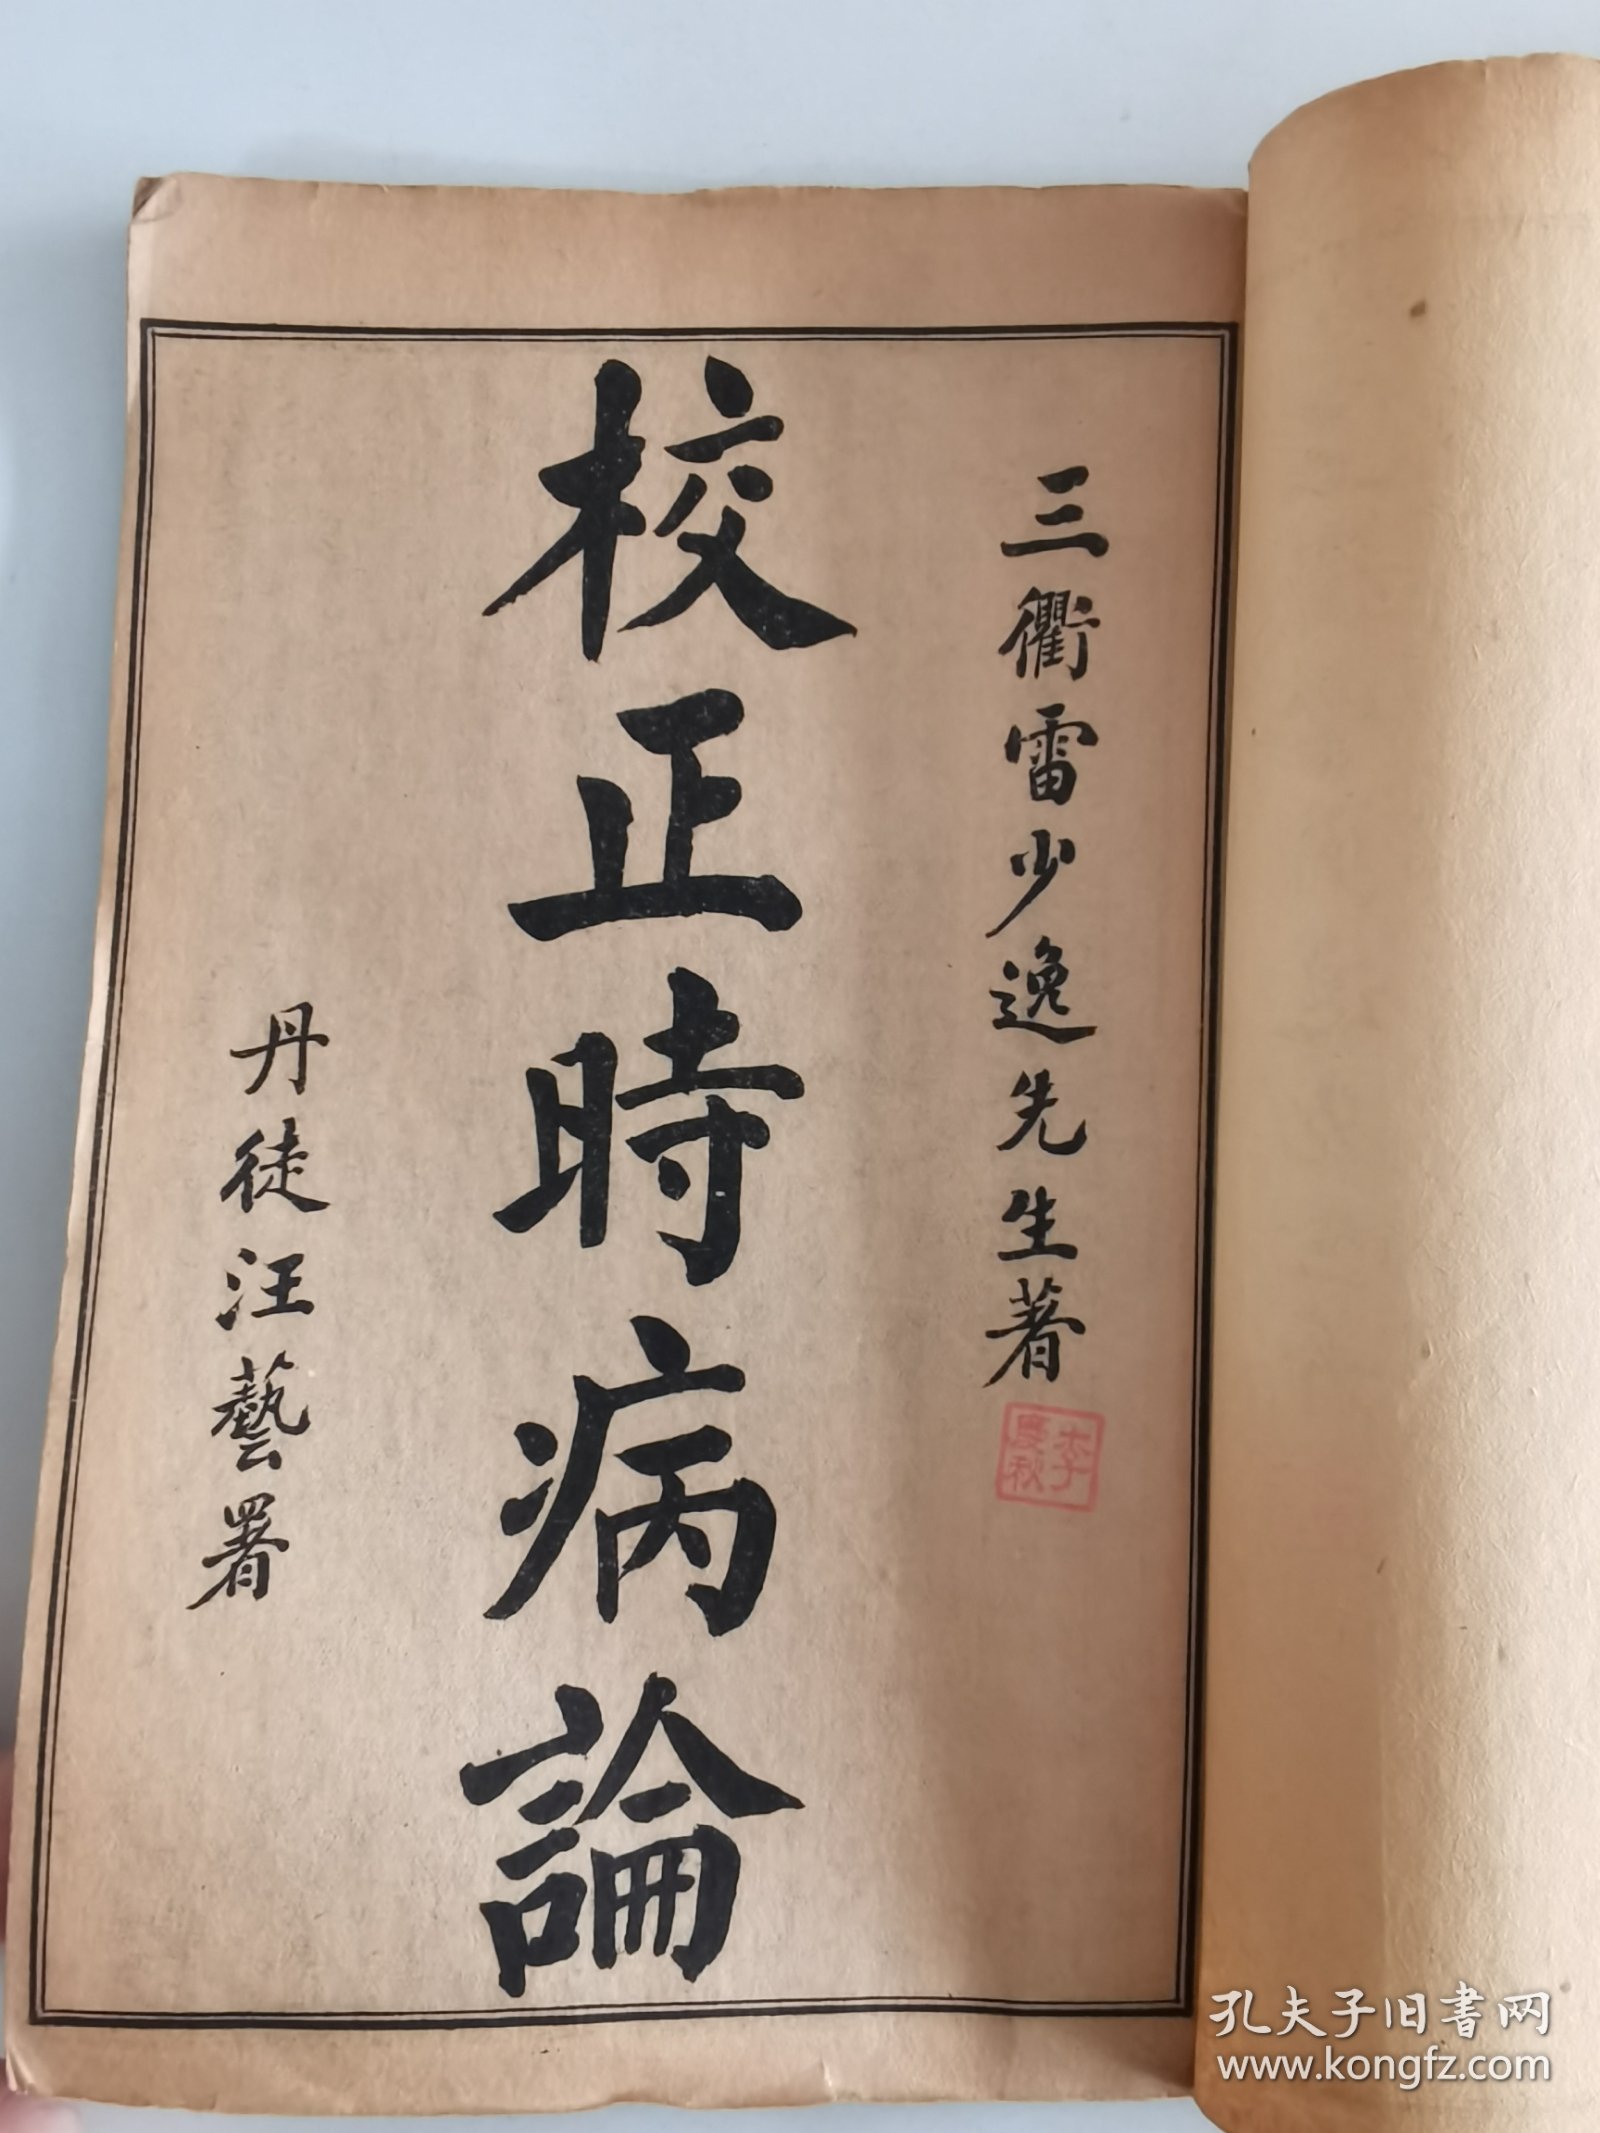 三衢雷少逸先生著
李慶秋
校正時病論
丹徒汪藝署
孔夫子旧书网
www.kongfz.com